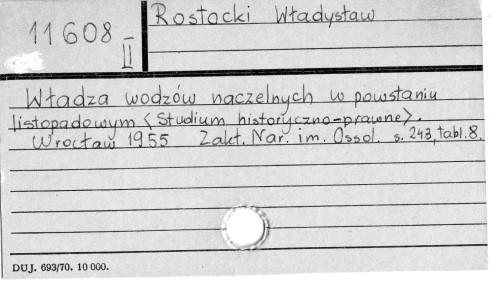 11608
II
Rostocki Władysław
Władza wodzów naczelnych w powstaniu
listopadowym <Studium historyczno-prawne>.
Wrocław 1955 Zakł. Nar. im. Ossol. s. 243, tabl. 8.
DUJ. 693/70. 10 000.